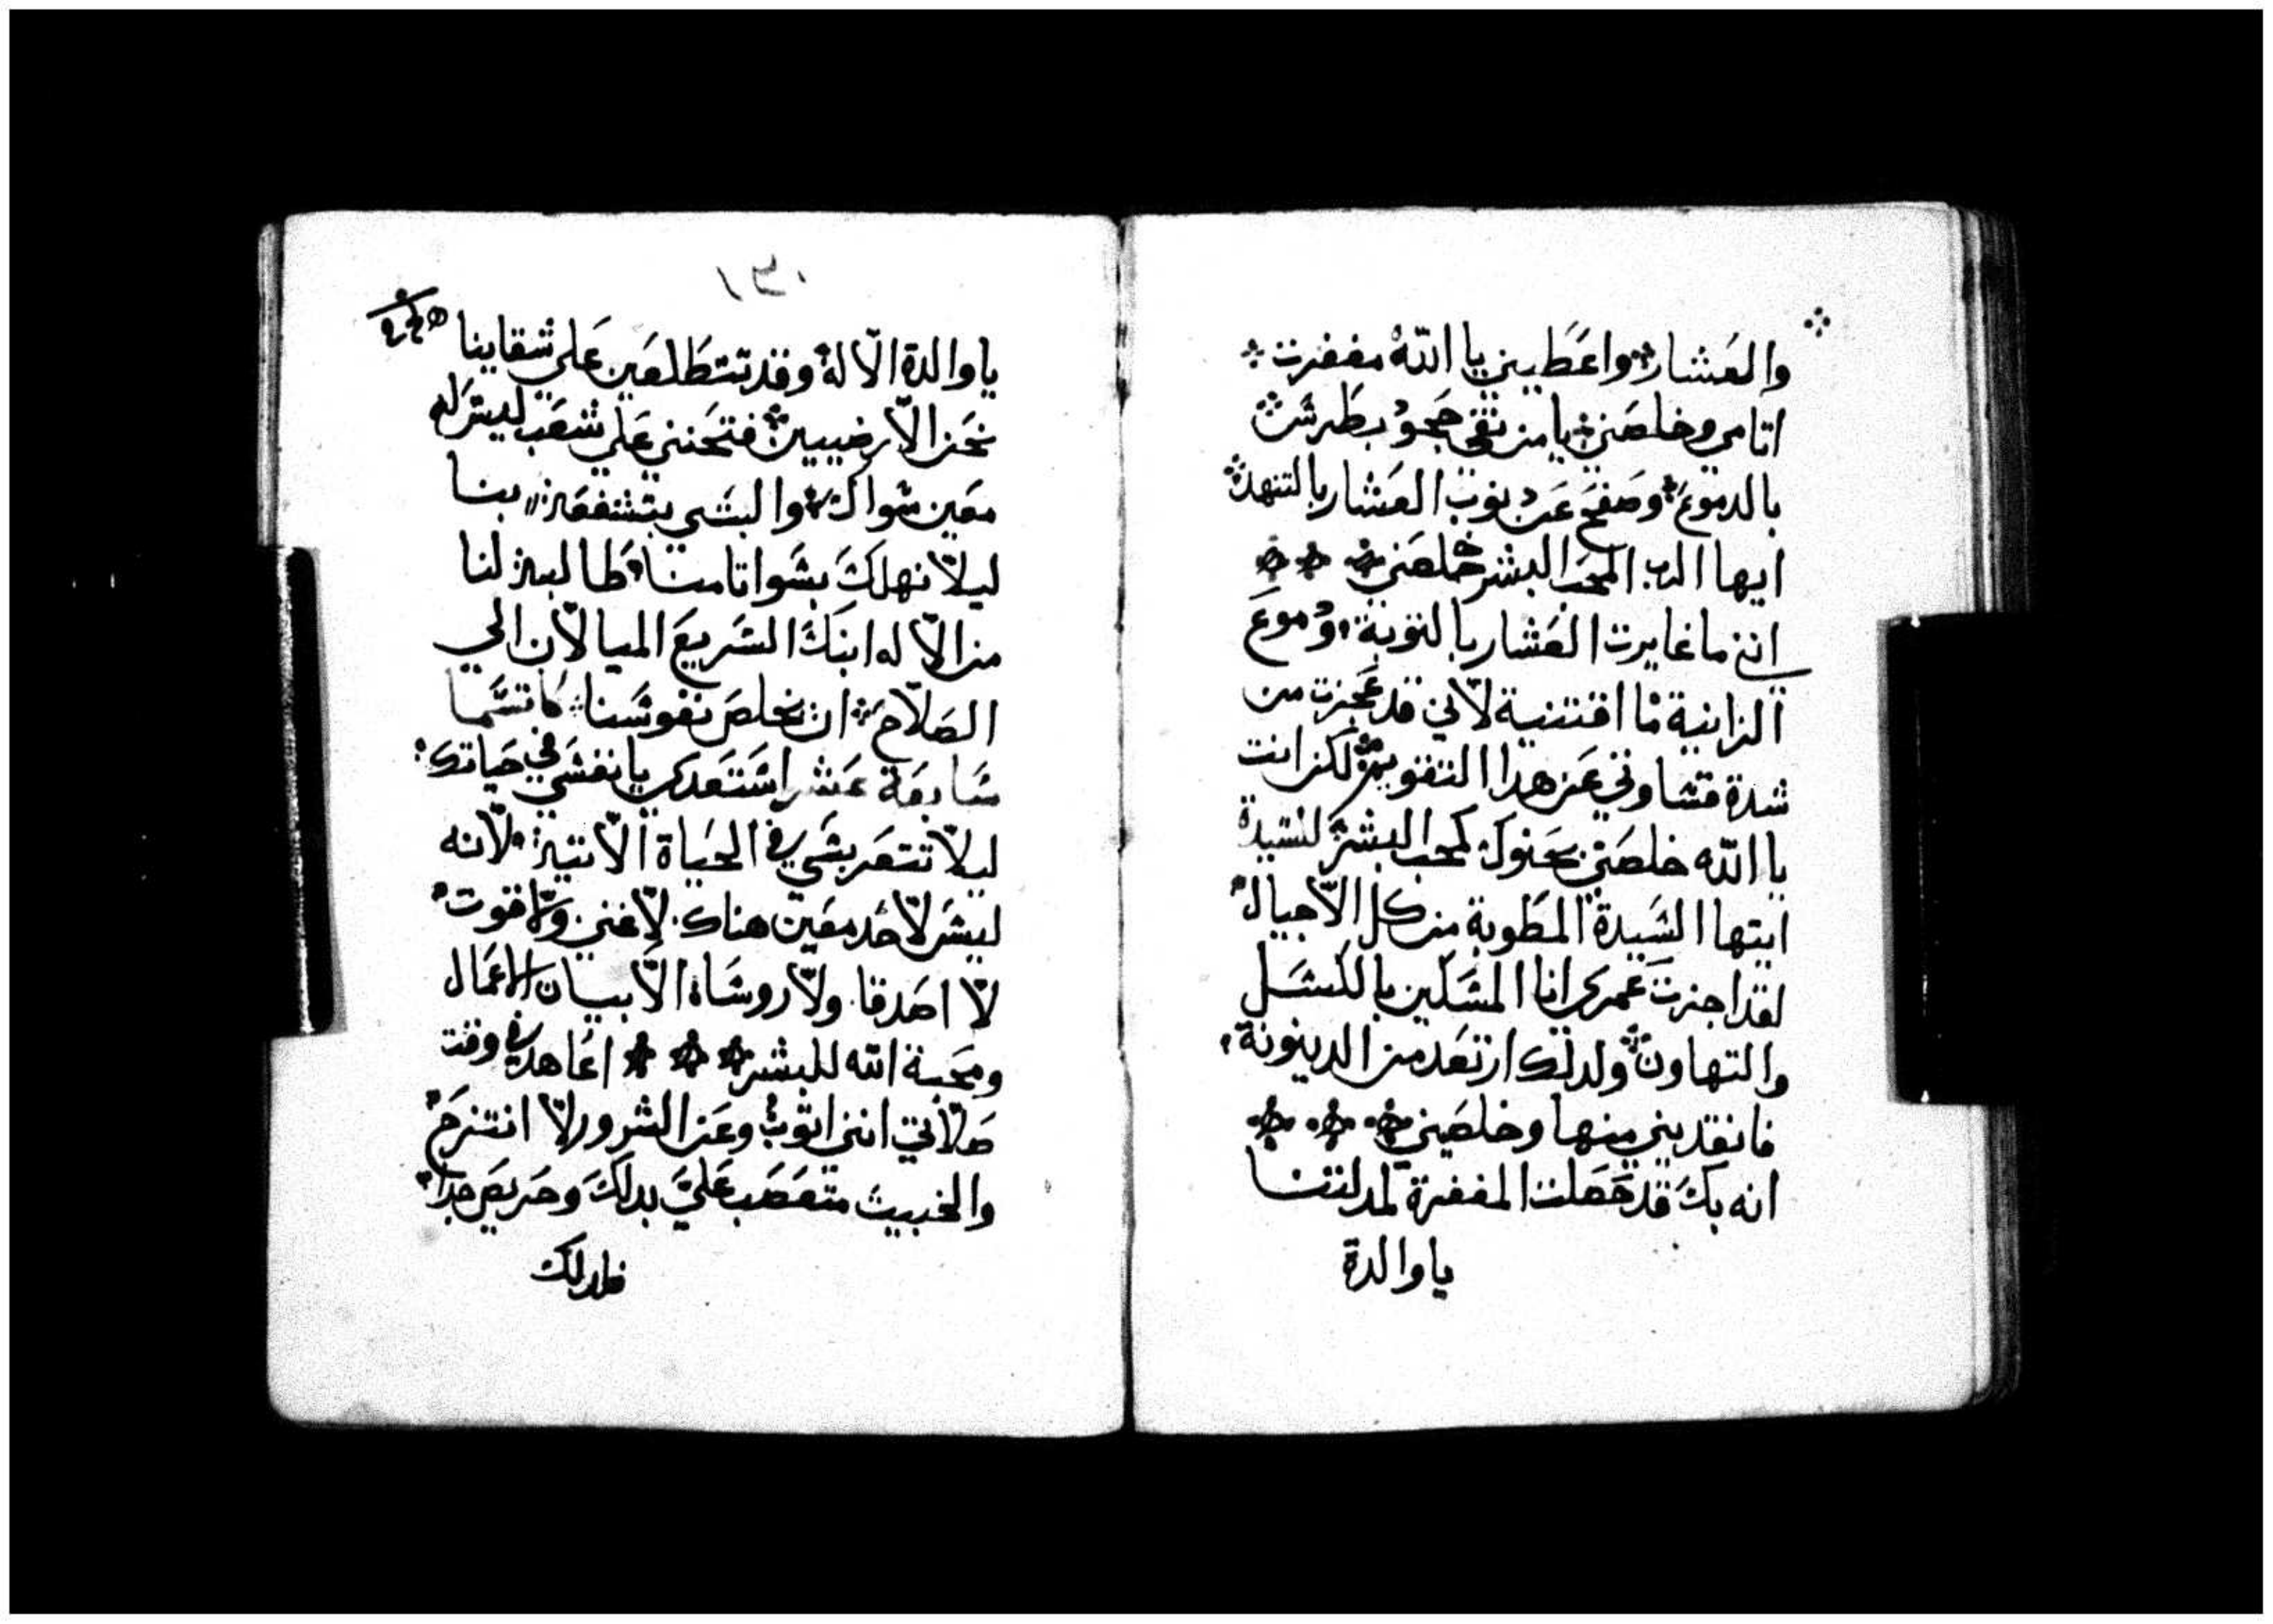 والعشار واعطيني يا الله مغفرت
اتامي وخلصني يا من نفى جحود بطرس
بالدموع وصفح عن دنوب العشار بالتنهد
ايها الرب المحب البشر خلصني
انني ما غايرت العشار بالتوبة ودموع
الزانية ما اقتنية لاني قد عجزت من
شدة قساوتي عن هدا التقويم لكن انت
يا الله خلصني بحنوك كمحب البشر للسيدة
ايتها السيدة المطوبة من كل الاجيال
لقد اجزت عمري انا المسكين بالكسل
والتهاون ولدلك ارتعد من الدينونة
فانقديني منها وخلصيني
انه بك قد حصلت المغفرة لمدلتنا
يا والدة
١٣١
يا والدة الاله وقد تتطلعين على شقاينا
نحن الارضيين فتحنني على شعب ليس له
معين سواك والبسي بتشفقين بنا
ليلا نهلك بسو اتامنا طالبين لنا
من الاله ابنك السريع الميالان الي
الصلاح ان يخلص نفوسنا كاتسما
سابعة عشر استعدي يا نفسي في حياتك
ليلا تتعربسي في الحياة الاتية لانه
ليس لاحد معين هناك لا غني ولا قوت
لا اصدقا ولا روساه الا بيان الاعمال
ومحبة الله للبشر اعاهد في وقت
صلاتي انني اتوب وعن الشرور لا انتزح
والخبيث متعصب علي بدلك وحريص جدا
فلدلك